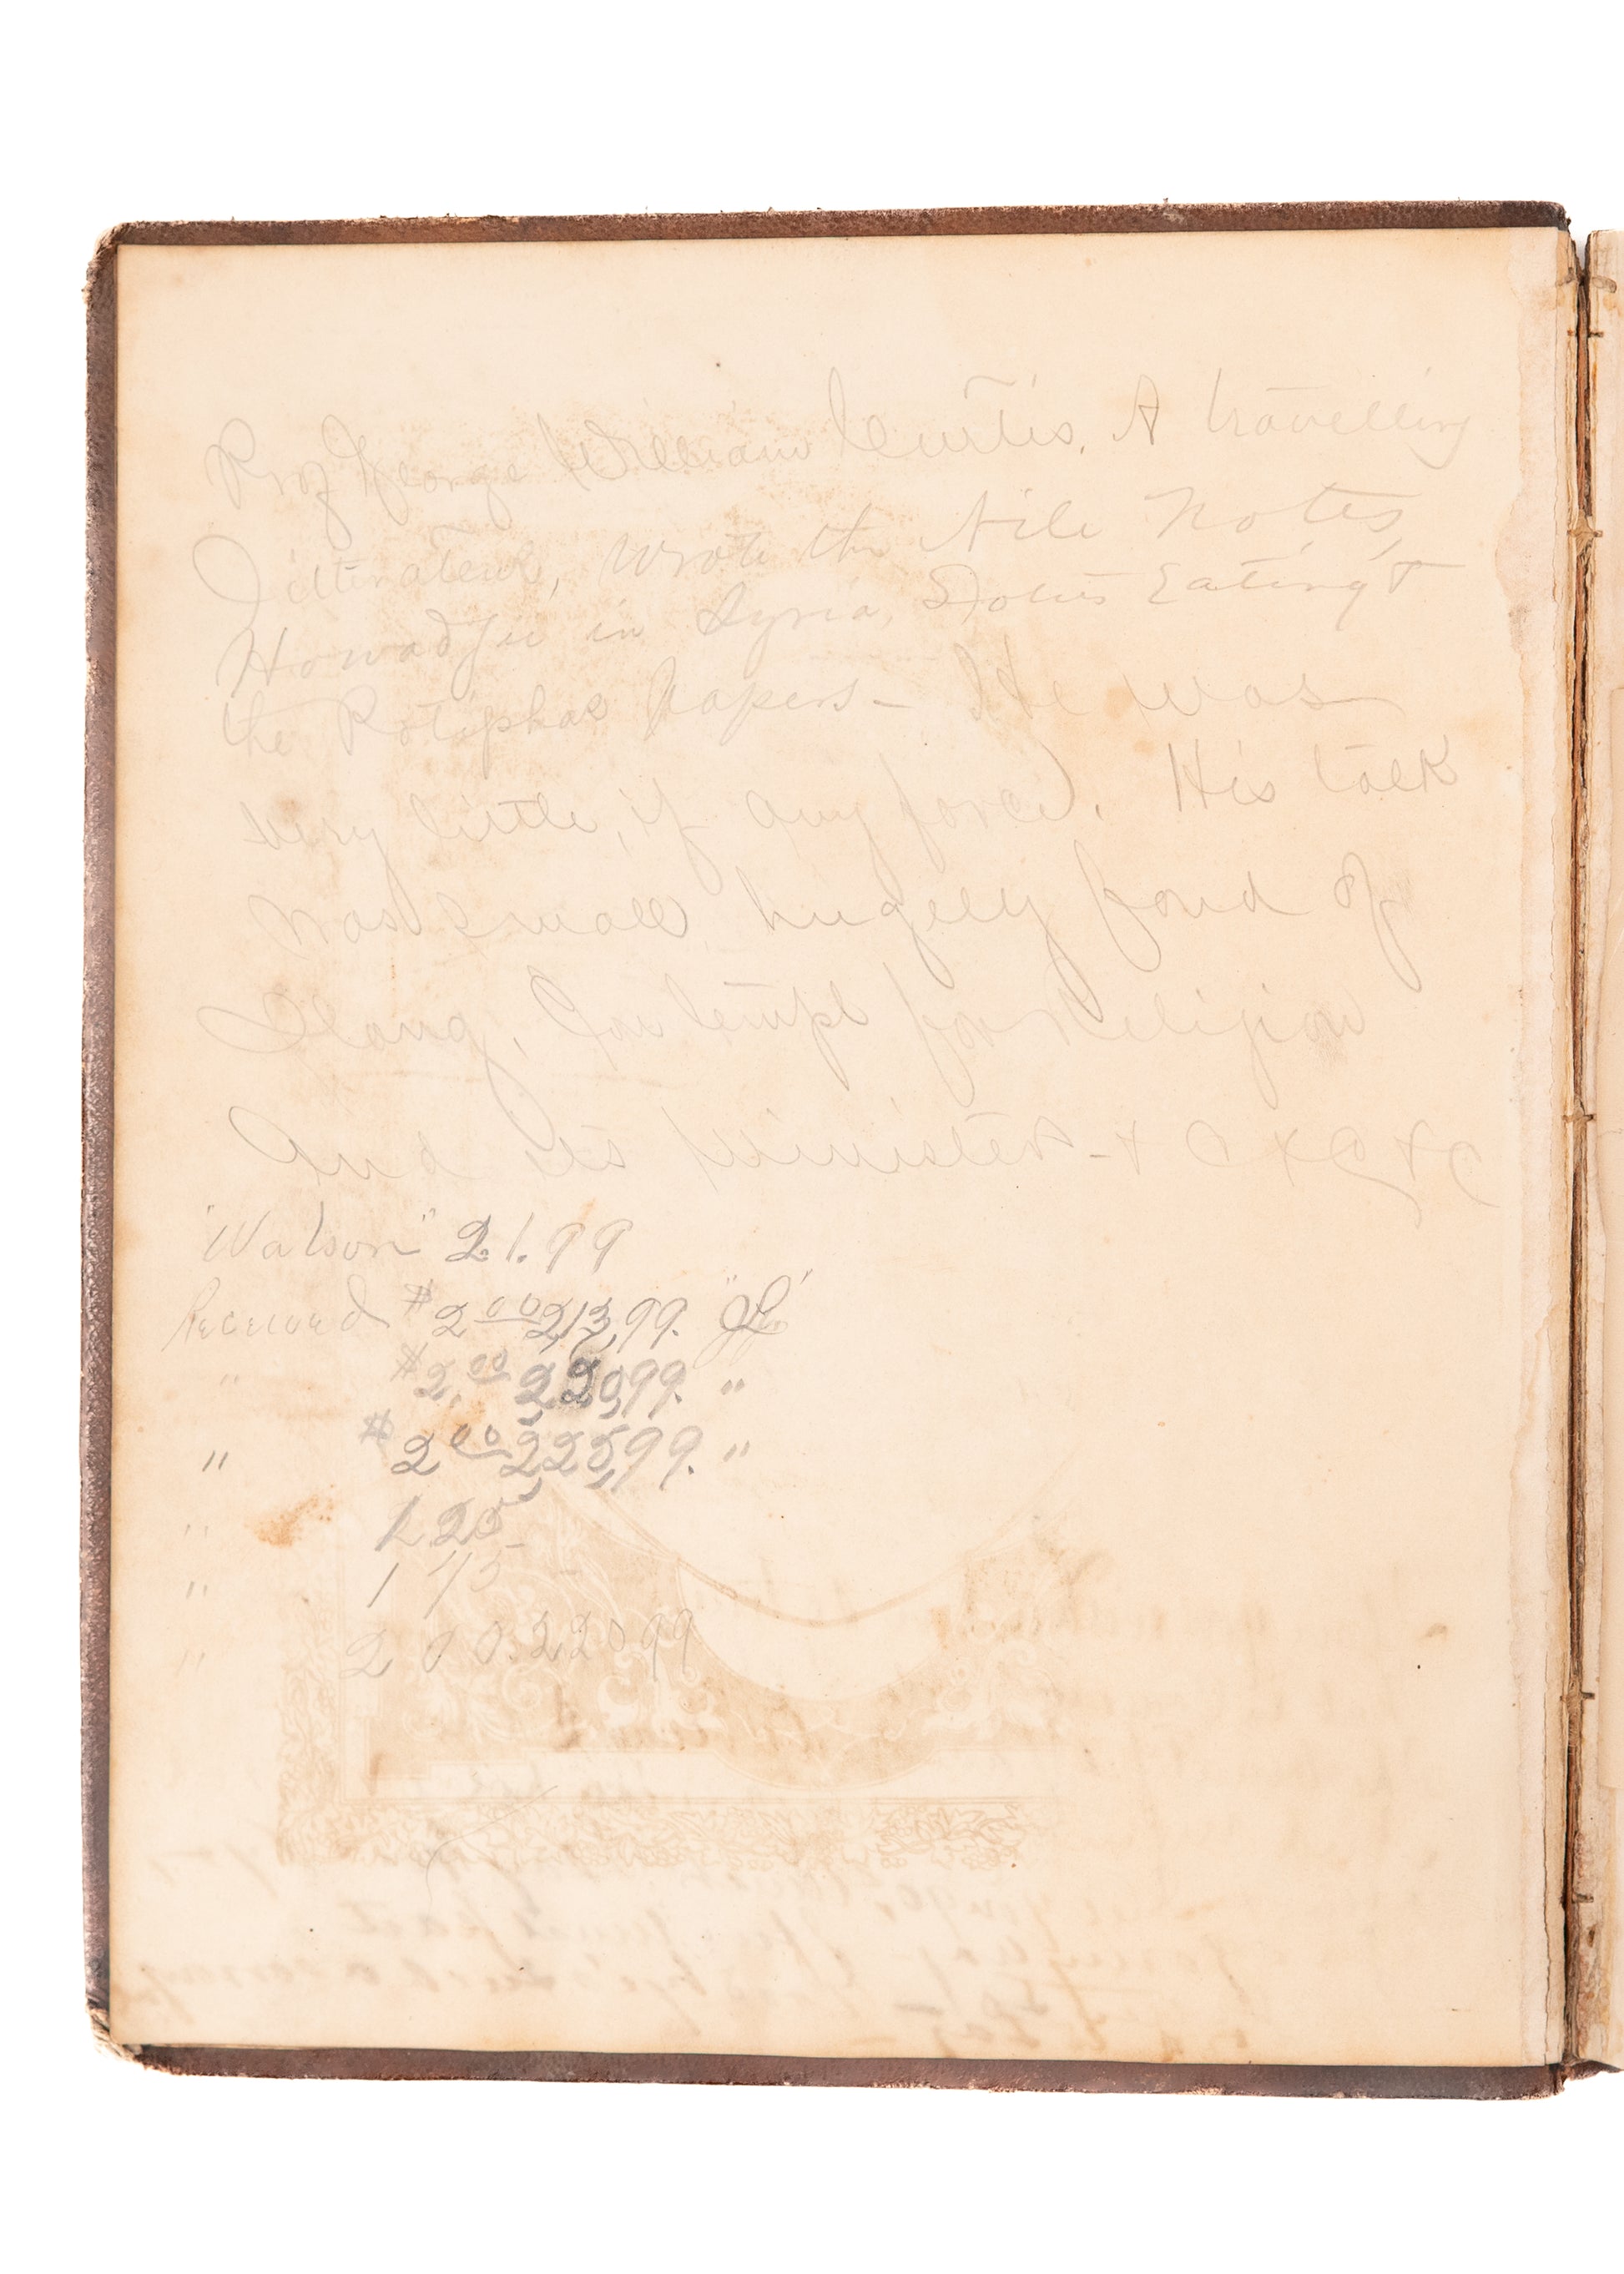 Prof George William Curtis, A travelling
Litterateur, wrote the Nile Notes,
Howadji in Syria, Lotus Eating &
the Potiphar Papers - He was
very little, if any force. His talk
was small, hugely fond of
Slang, Contempt for Religion
And its Ministers - & C & C & C
"Watson" 2.1.99
Received $2.00 2,13,99. "
" $2.00 2,20,99. "
" $2.00 2,25,99. "
" 1.25
" 1 75
" 2 00. 2 20 99